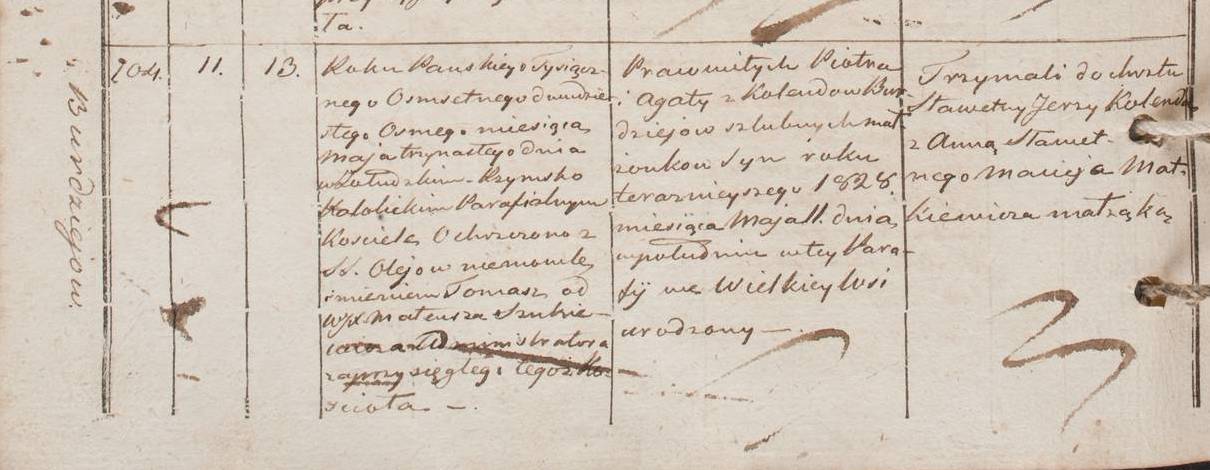 ta.
Burdziejow.
704. 11. 13.
Roku Pańskiego Tysiącz-
nego Osmsetnego dwudzie-
stego Osmego miesiąca
Maja trzynastego dnia
Rzymsko
Katolickim Parafialnym
Kościele Ochrzczono z
SS. Olejow niemowlę
imieniem Tomasz, od
Mateusza Szukie-
wicza Administratora
zaprzysięgłego tegoż Ko-
scioła —.
Prawowitych Piotra
i Agaty z Kolendow Bur-
dziejow szlubnych mał-
żonkow Syn roku
teraznieyszego 1828
miesiąca Maja 11. dnia
w południe w tey Para-
fij we Wielkiey Wsi
urodzony —.
Trzymali do chrztu
Sławetny Jerzy Kolenda
z Anną Sławet-
nego Macieja Mat-
kiewicza małżąką